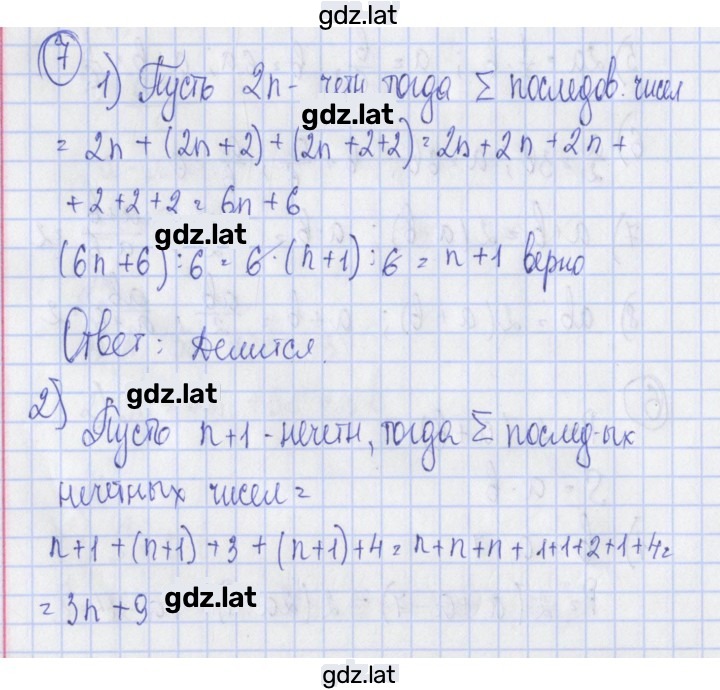 gdz.lat
7
1) Пусть 2n - четн тогда Σ последов. чисел
gdz.lat
= 2n + (2n + 2) + (2n + 2 + 2) = 2n + 2n + 2n +
+ 2 + 2 + 2 = 6n + 6
gdz.lat
(6n + 6) : 6 = 6 · (n + 1) : 6 = n + 1 верно
Ответ: делится.
gdz.lat
2) Пусть n+1 - нечетн, тогда Σ послед-ых
нечетных чисел =
n + 1 + (n+1) + 3 + (n+1) + 4 = n + n + n + 1+1+2+1+4 =
= 3n + 9
gdz.lat
gdz.lat